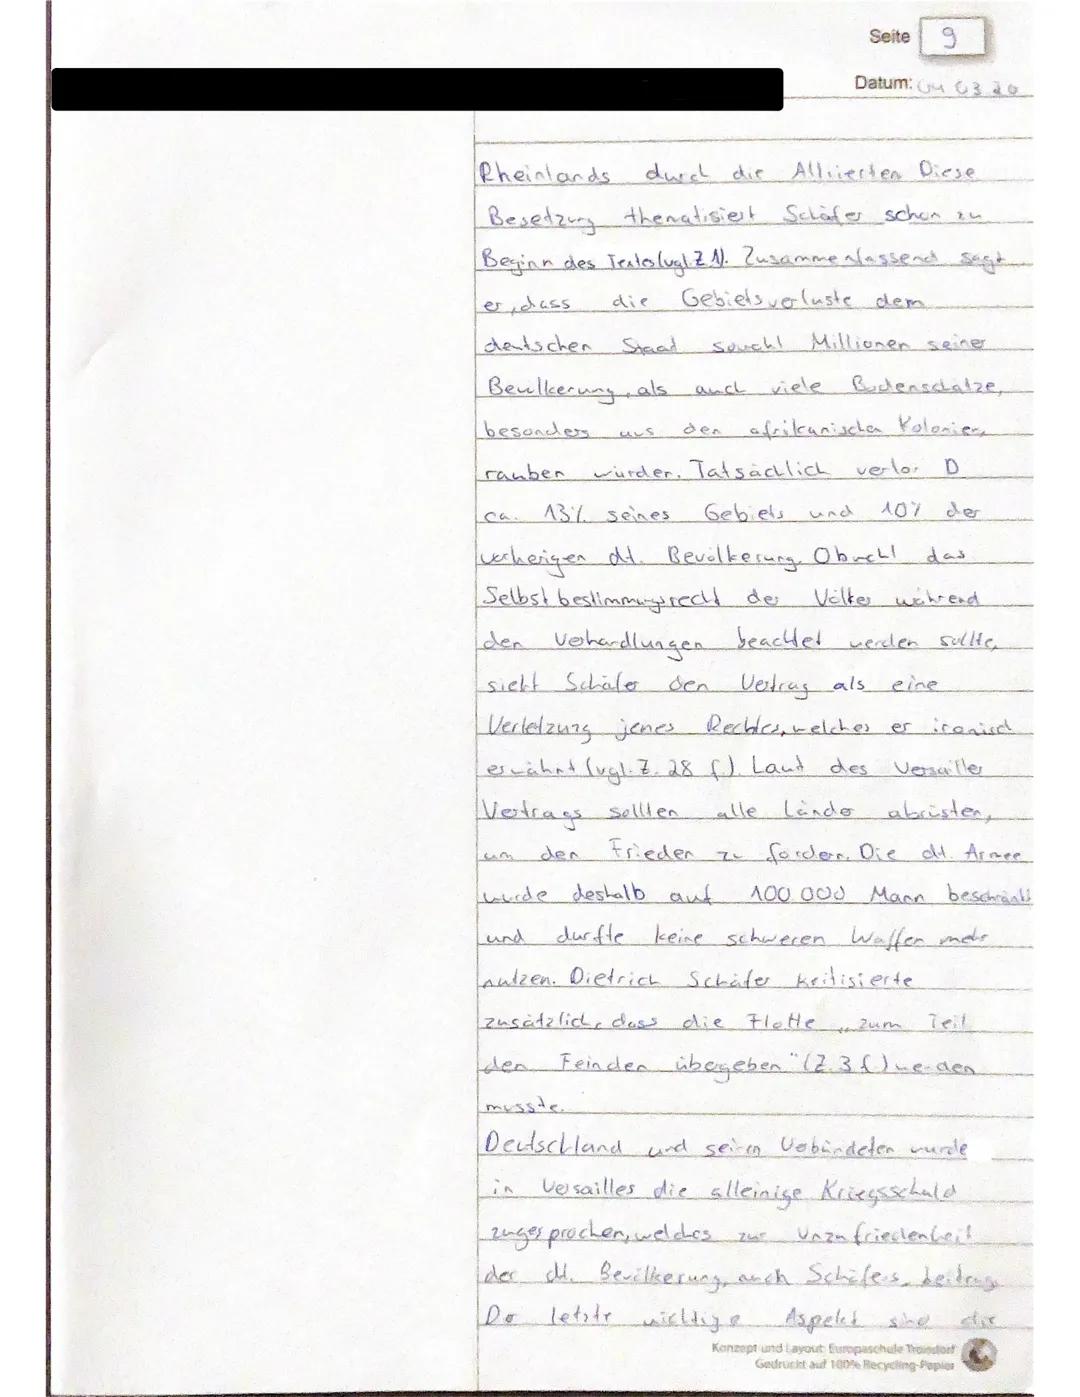 Seite 9
Datum: 04 03 20
Rheinlands durch die Alliierten Diese
Besetzung thematisiert Schäfer schon zu
Beginn des Textes (vgl. Z 1). Zusammenfassend sagt
er, dass die Gebietsverluste dem
deutschen Staat sowohl Millionen seiner
Bevölkerung, als auch viele Bodenschätze,
besonders aus den afrikanischen Kolonien,
rauben würden. Tatsächlich verlor D
ca. 13% seines Gebiets und 10% der
vorherigen dt. Bevölkerung. Obwohl das
Selbstbestimmungsrecht der Völker während
den Verhandlungen beachtet werden sollte,
sieht Schäfer den Vertrag als eine
Verletzung jenes Rechtes, welches er ironisch
erwähnt (vgl. Z. 28 f.). Laut des Versailler
Vertrags sollten alle Länder abrüsten,
um den Frieden zu fördern. Die dt. Armee
wurde deshalb auf 100 000 Mann beschränkt
und durfte keine schweren Waffen mehr
nutzen. Dietrich Schäfer kritisierte
zusätzlich, dass die Flotte „zum Teil
den Feinden übergeben" (Z. 3 f.) werden
musste.
Deutschland und seinen Verbündeten wurde
in Versailles die alleinige Kriegsschuld
zugesprochen, welches zur Unzufriedenheit
der dt. Bevölkerung, auch Schäfers, beitrug.
Der letzte wichtige Aspekt sind die
Konzept und Layout: Europaschule Troisdorf
Gedruckt auf 100% Recycling-Papier